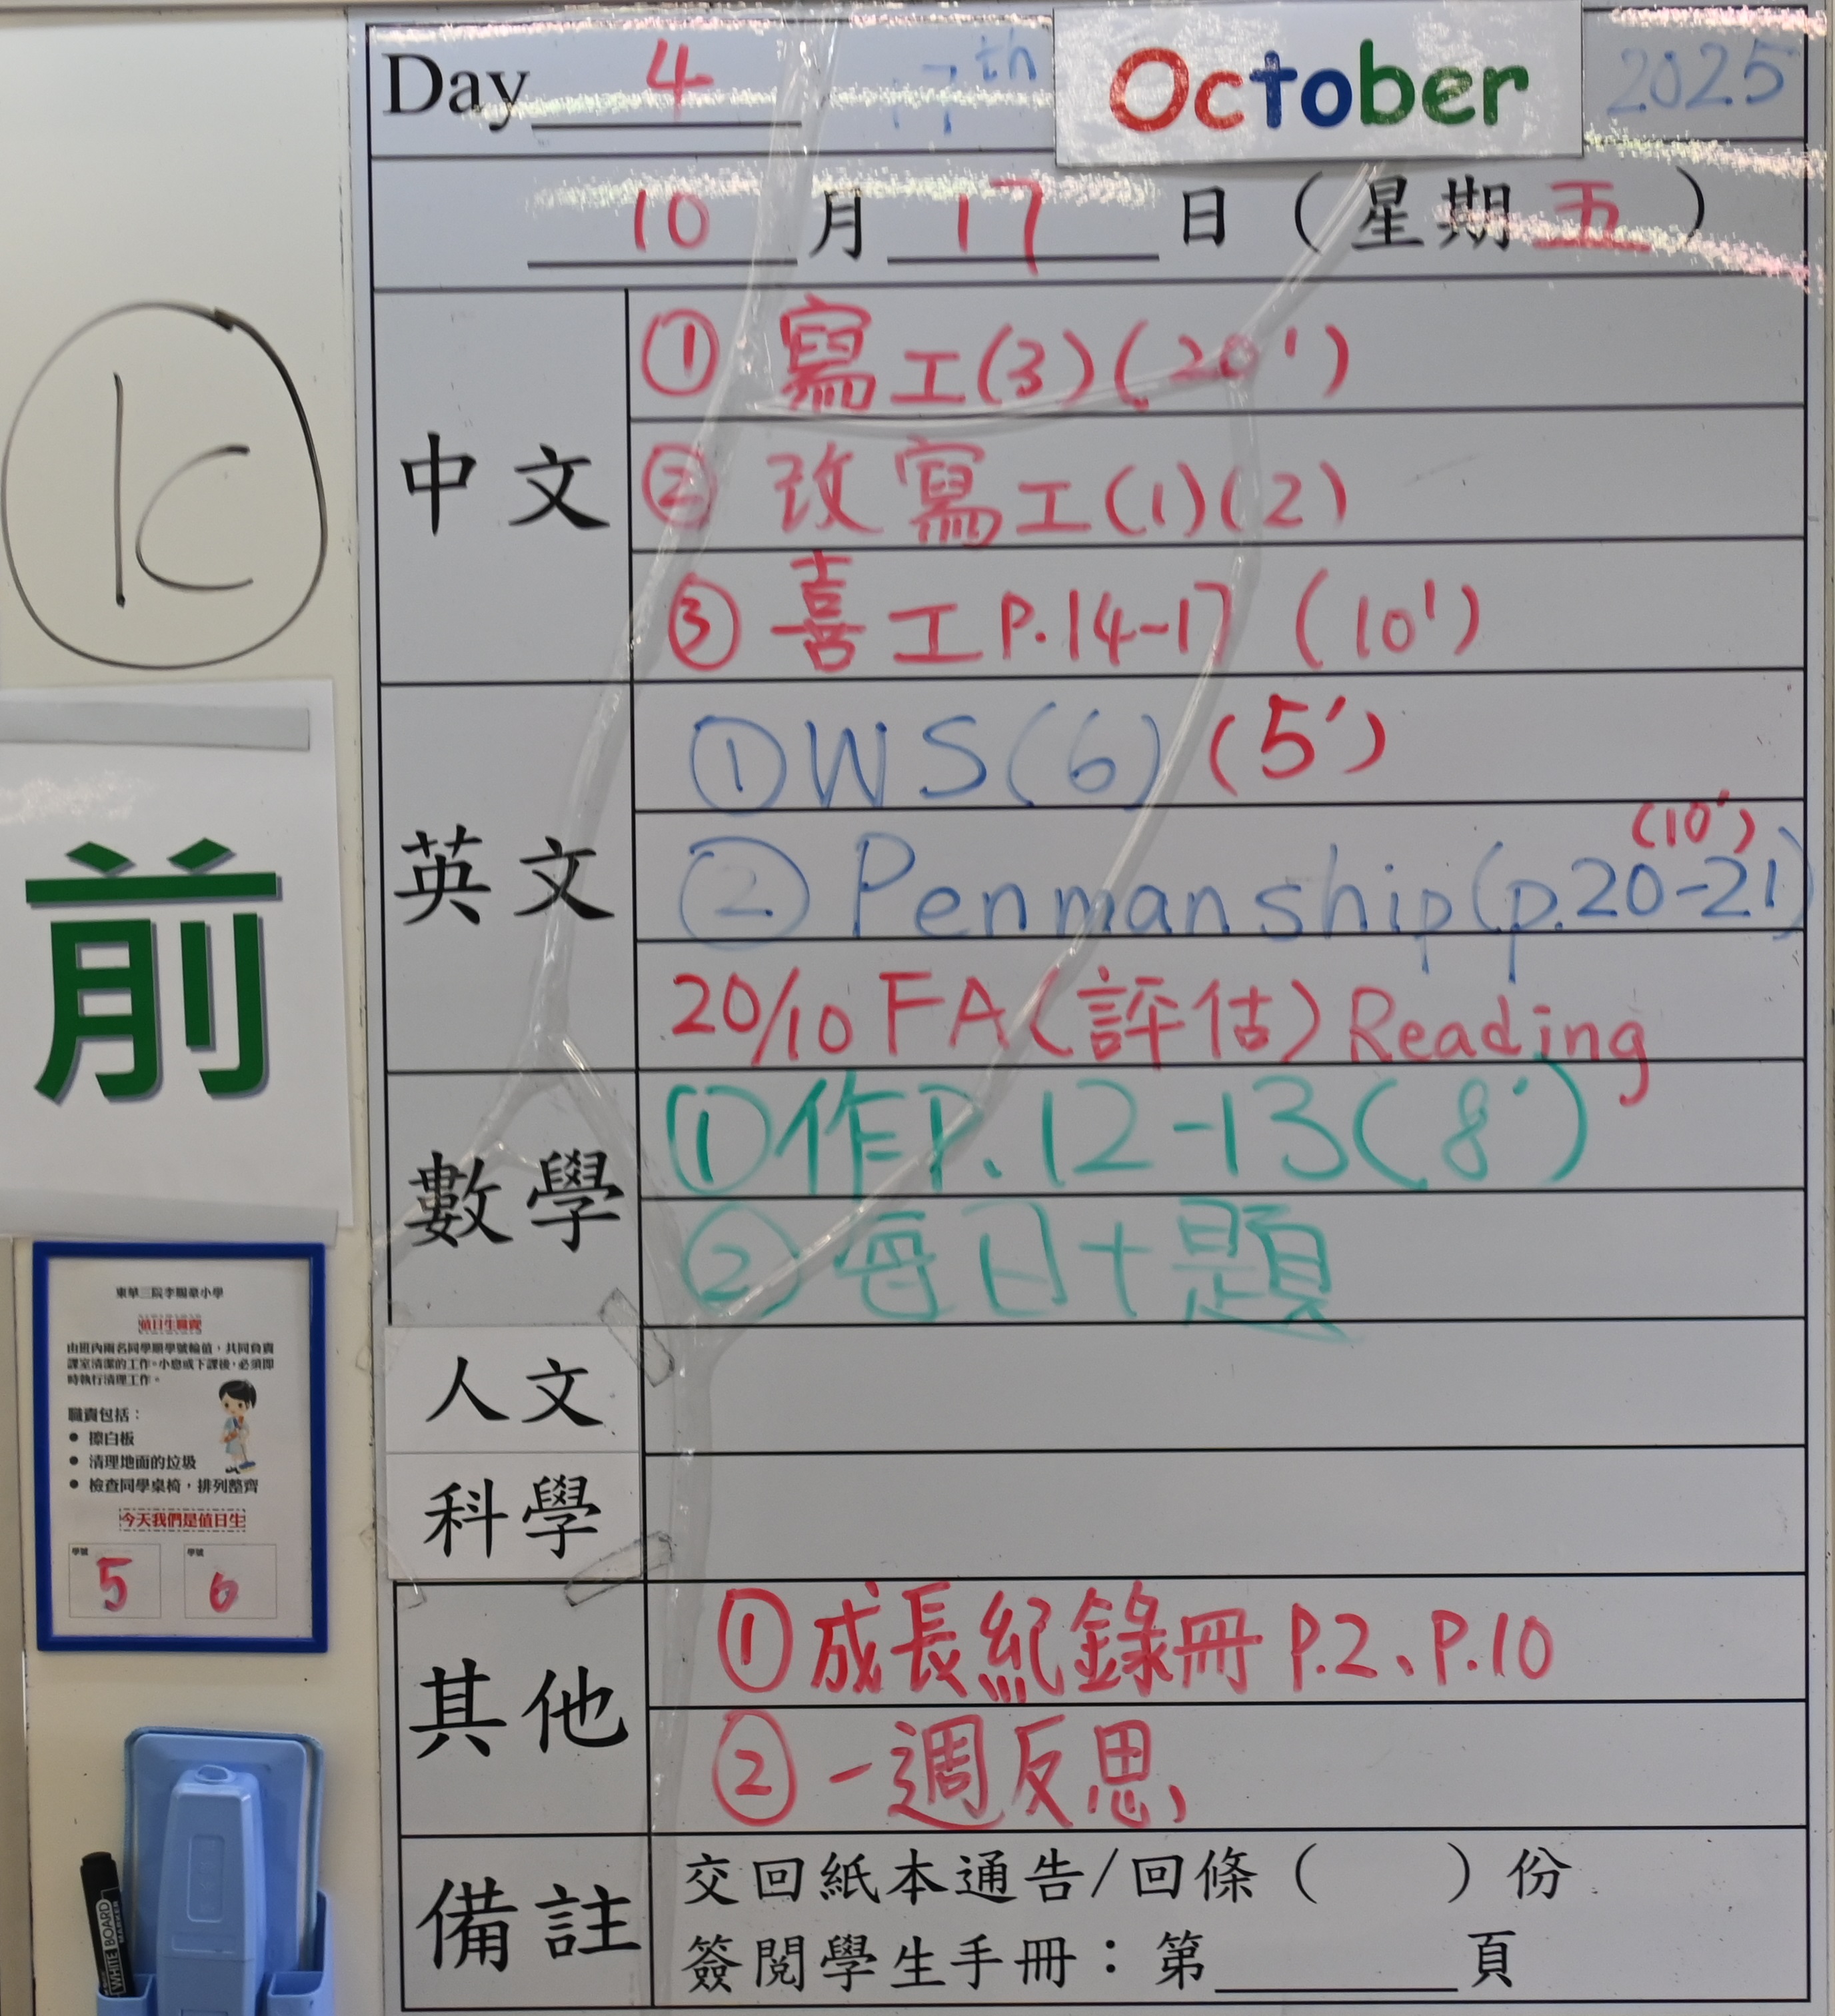 Day 4 17th October 2025
10 月 17 日 (星期五)
中文
① 寫工(3)(20')
② 改寫工(1)(2)
③ 喜工P.14-17 (10')
英文
① WS(6) (5')
(10')
② Penmanship(p.20-21)
20/10 FA(評估) Reading
數學
① 作P.12-13(8')
② 每日十題
人文
科學
其他
① 成長紀錄冊 P.2、P.10
② 一週反思
備註
交回紙本通告/回條( )份
簽閱學生手冊:第____頁
K
前
東華三院李賜豪小學
值日生職責
由班內兩名同學順學號輪值,共同負責
課室清潔的工作。小息或下課後,必須即
時執行清理工作。
職責包括:
● 擦白板
● 清理地面的垃圾
● 檢查同學桌椅,排列整齊
今天我們是值日生
學號 5 學號 6
WHITE BOARD
MARKER